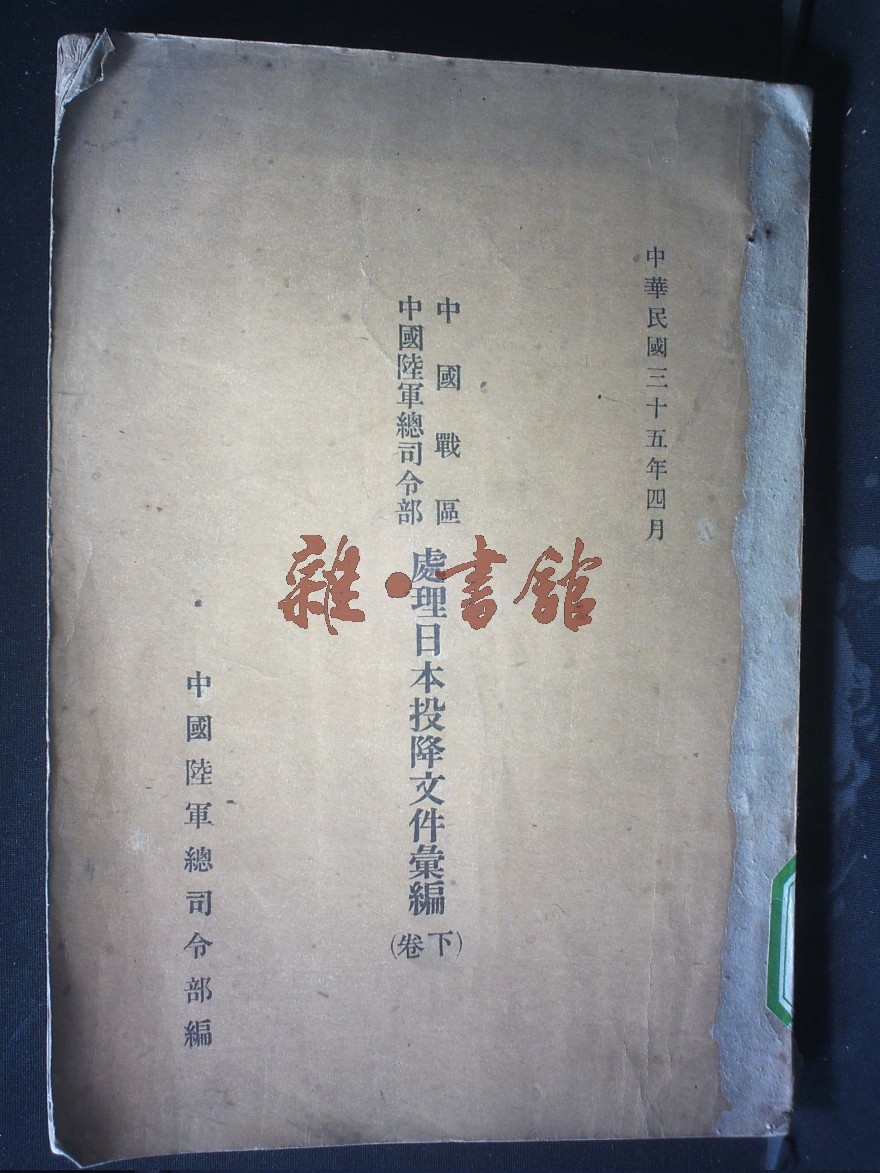 中華民國三十五年四月
中國戰區
中國陸軍總司令部
處理日本投降文件彙編
(下卷)
中國陸軍總司令部編
雜·書館